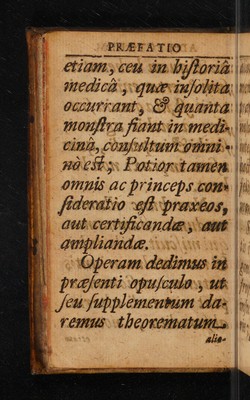 PRÆFATIO
etiam, ceu in historiâ
medicâ, quæ insolita
occurrant, & quanta
monstra fiant in medi-
cinâ, consultum omni-
nò est; Potior tamen
omnis ac princeps con-
sideratio est praxeos,
aut certificandæ, aut
ampliandæ.
Operam dedimus in
præsenti opusculo, ut
seu supplementum da-
remus theorematum
alio-